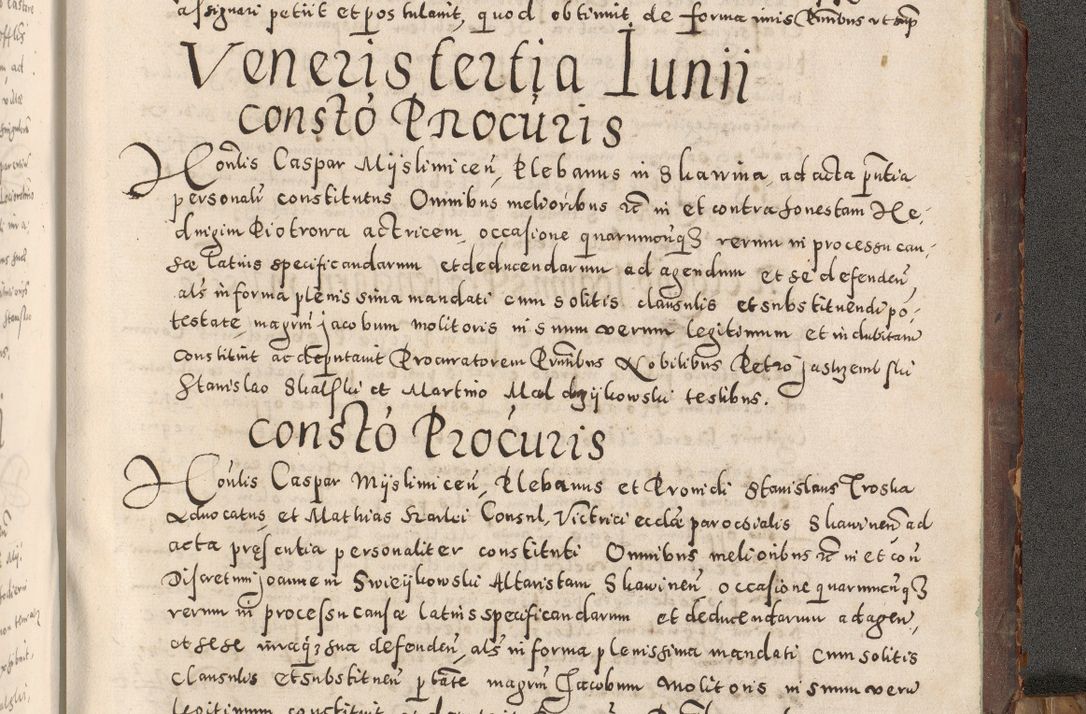 assignari petiit et postulavit, quod obtinuit de forma
Veneris tertia Iunii
constō Procuris
Honlis Caspar Mÿslimiceñ, Plebanus in Skawina, ad acta pñtia
personalr constitutus Omnibus melioribus rc in et contra honestam He-
dvigim Piotrowa actricem, occasione quarumcunqz rerum in processu cau-
sæ latius specificandarum et deducendarum ad agendum et se defendeñ,
als in forma plenissima mandati cum solitis clausulis et substituendi po-
testate, magrm jacobum molitoris in suum verum legitimum et indubitatum
constituit ac deputavit Procuratorem Pntibus Nobilibus Petro jastrzembski
Stanislao Skarski et Martino Mal dzÿkowski testibus.
constō Procuris
Honlis Caspar Mÿslimiceñ, Plebanus et Providi Stanislaus Troska
Advocatus, et Mathias Consul, Victrici ecclæ parocsialis Skawineñ ad
acta præsentia personaliter constituti Omnibus melioribus rc in et coñ
Discretum joannem Swieÿkowski Altaristam Skawineñ, occasione quarumcunqz
rerum in processu causæ latius specificandarum et deducendarum ad agen,
et sese iuraqz sua defendeñ, als in forma plenissima mandati cum solitis
clausulis et substitueñ ptāte magrm Jacobum Molitoris in suum veru
legitimum constituit et